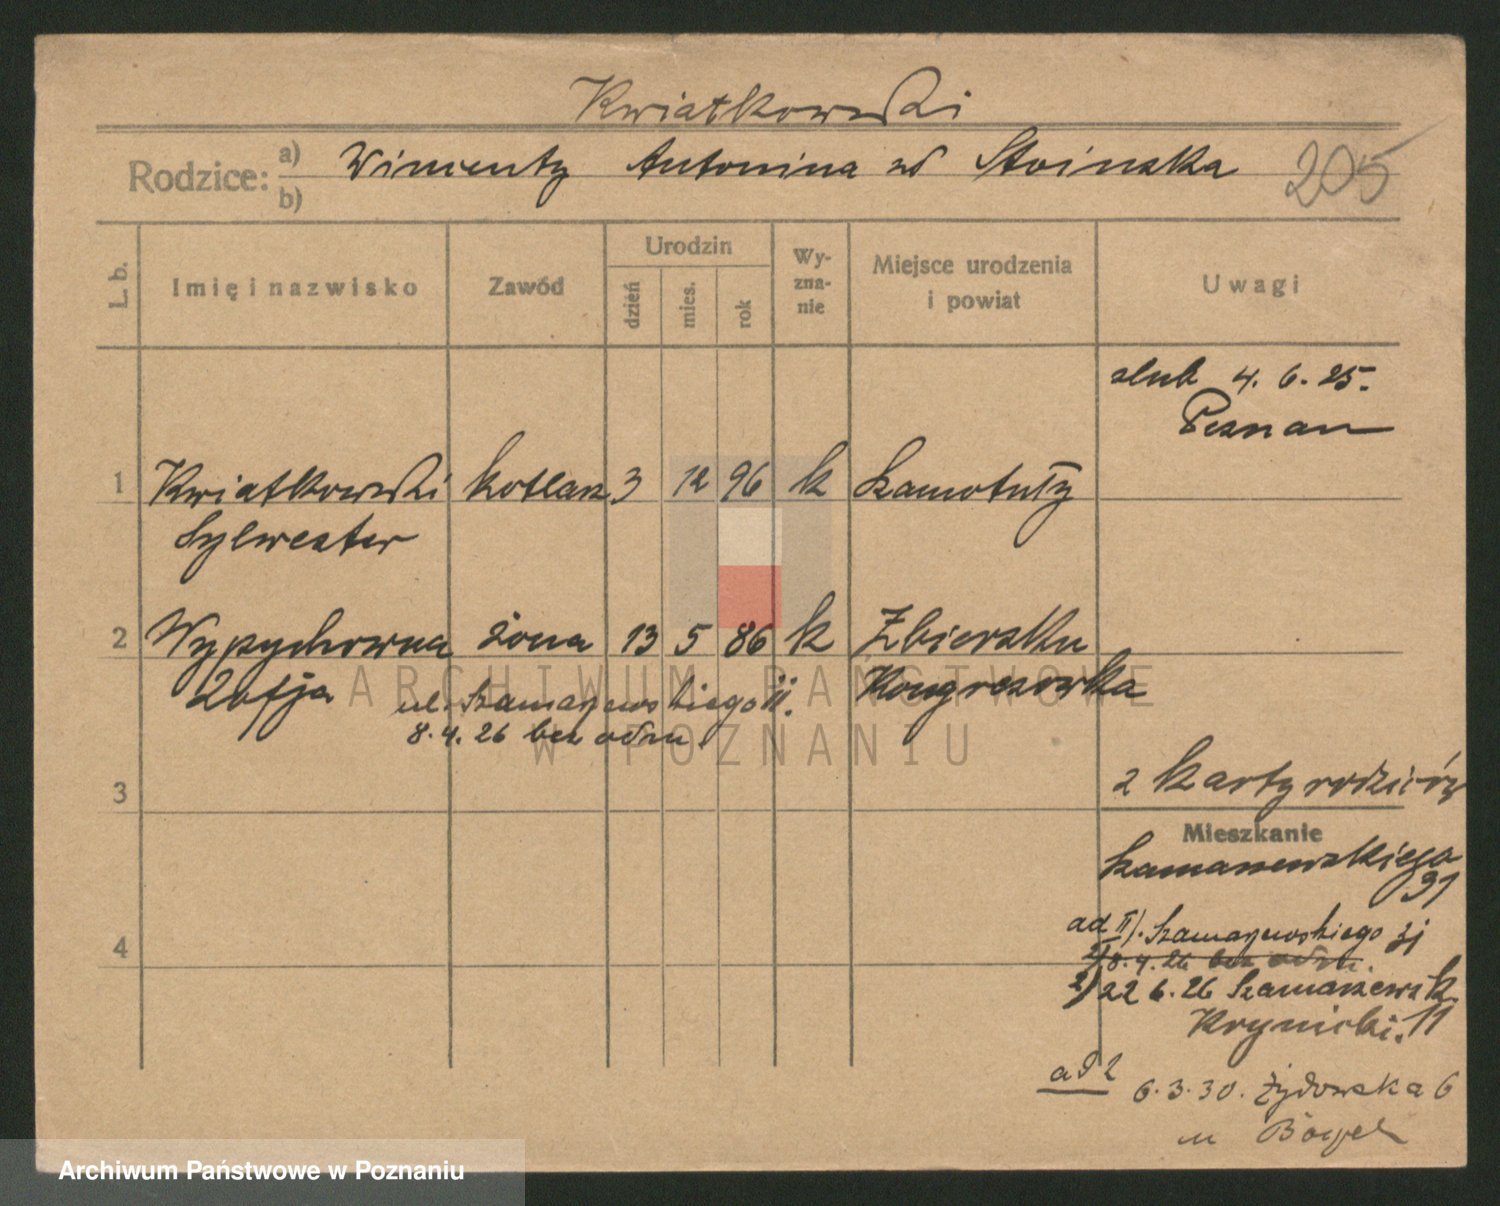 Kwiatkowski
Rodzice: a) Wincenty Antonina zd Stoinska 205
b)
L. b. Imię i nazwisko Zawód Urodzin dzień mies. rok Wyznanie Miejsce urodzenia i powiat Uwagi
slub 4. 6. 25.
Poznan
1 Kwiatkowski kotlarz 3 12 96 k Szamotuły
Sylwester
2 Wypychowna żona 13 5 86 k Zbiersku
Zofja Kongresowka
ul. Szamarzewskiego 11.
8. 4. 26 bez odm.
3 z karty rodziców
Mieszkanie
Szamarzewskiego
31
ad II). Szamarzewskiego 31
2) 8. 4. 26 bez odm.
4
2) 22 6. 26 Szamarzewsk. 11
Krynicki.
ad 2 6. 3. 30. Żydowska 6
u
ARCHIWUM PAŃSTWOWE
W POZNANIU
Archiwum Państwowe w Poznaniu